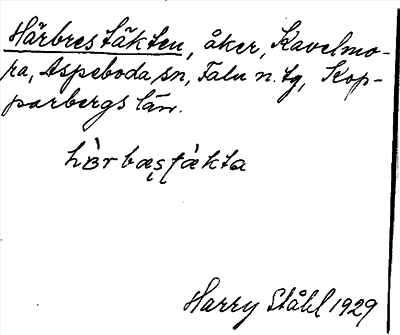 Härbrestäkten, åker, Kavelmo-
ra, Aspeboda, sn, Falu n. tg, Kop-
parbergs län.
hàrbæs̨tǽkta
Harry Ståhl 1929